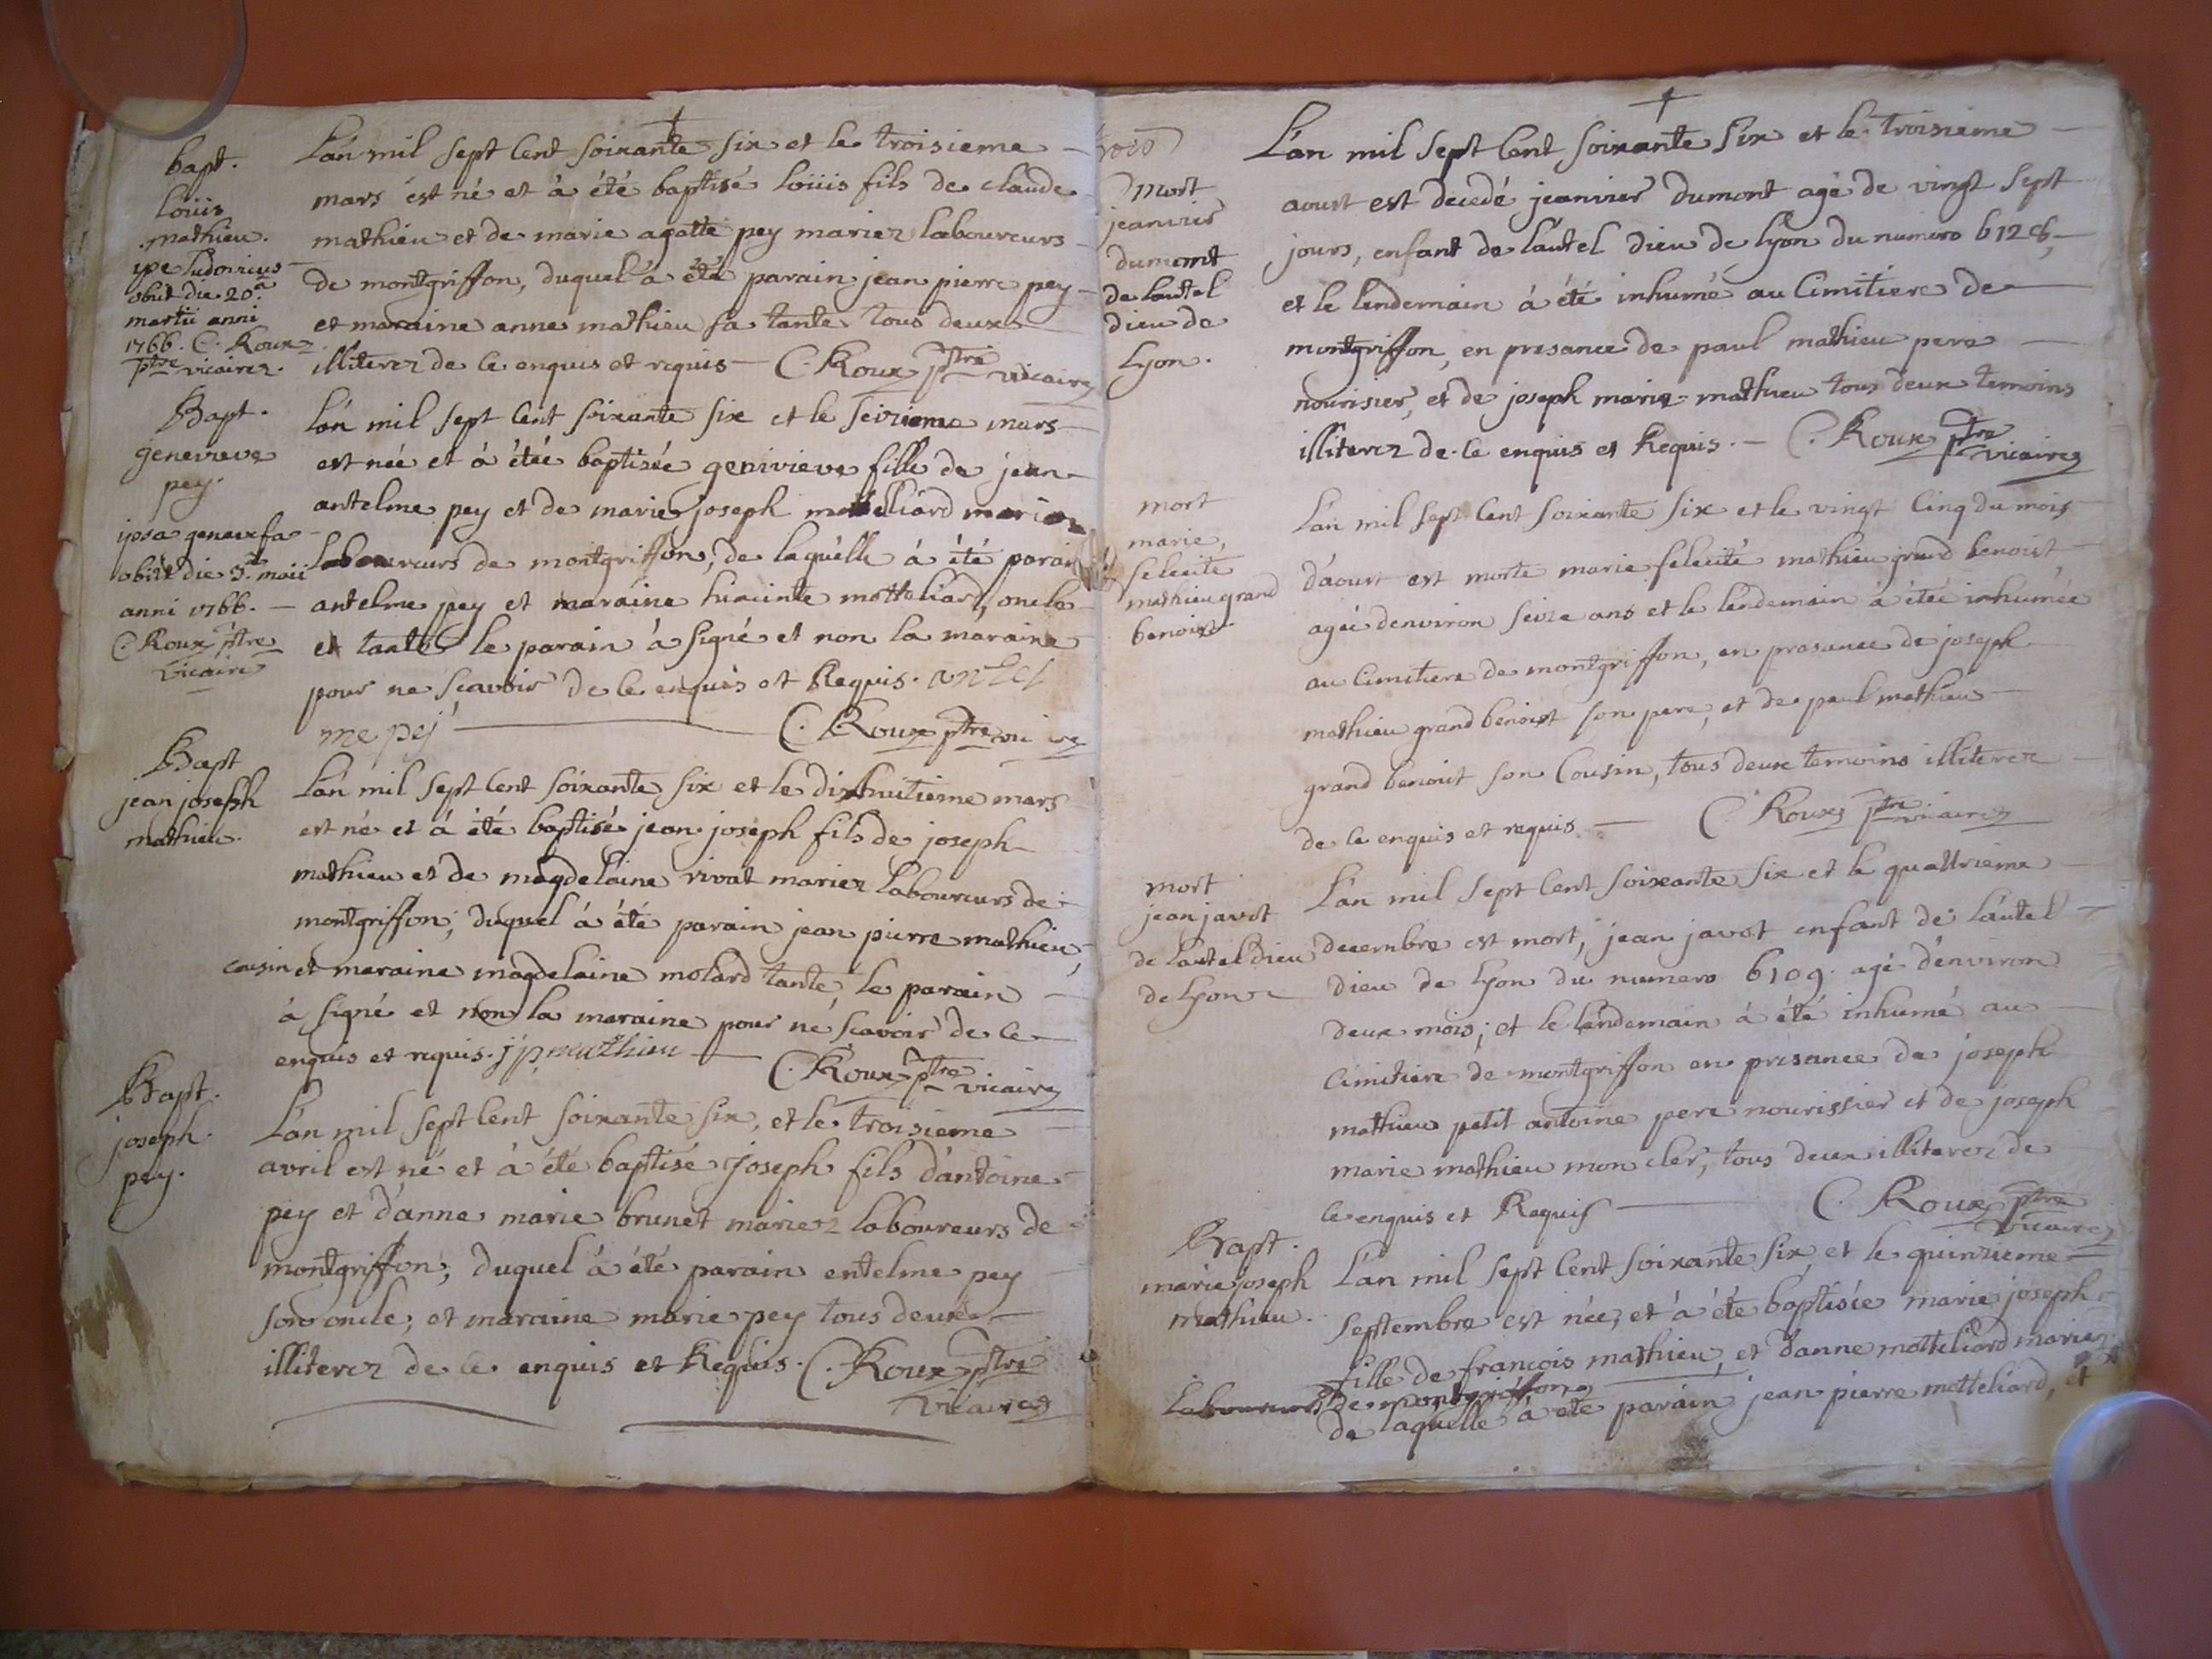 bapt.
loüis
mathieu.
ipse ludovicus
obiit die 20a
martii anni
1766. C. Roux
ptre vicaire
L'an mil sept cent soixante six et le troisieme
mars est né et à été baptisé loüis fils de claude
mathieu et de marie agatte pey mariez laboureurs
de montgriffon, duquel à été parain jean pierre pey
et maraine anne mathieu sa tante tous deux
illiterez de ce enquis et requis — C. Roux ptre vicaire
Bapt.
genevieve
pey.
ipsa genovefa
obiit die 3a maii
anni 1766. —
C. Roux ptre
vicaire
L'an mil sept cent soixante six et le seizieme mars
est née et à étée baptisée genivieve fille de jean
antelme pey et de marie joseph motteliard mariez
laboureurs de montgriffon, de laquelle à été parain
antelme pey et maraine hiacinte motteliard, oncle
et tante le parain à signé et non la maraine
pour ne scavoir de ce enquis et Requis. antel
me pej — C. Roux ptre vicaire
Bapt
jean joseph
mathieu.
L'an mil sept cent soixante six et le dixhuitieme mars
est né et à été baptisé jean joseph fils de joseph
mathieu et de magdelaine rivat mariez laboureurs de
montgriffon; duquel à été parain jean pierre mathieu,
cousin et maraine magdelaine molard tante, le parain
à signé et non la maraine pour ne scavoir de ce
enquis et requis. j p mathieu — C. Roux ptre vicaire
Bapt.
joseph
pey.
L'an mil sept cent soixante six, et le troisieme
avril est né et à été baptisé joseph fils d'antoine
pey et d'anne marie brunet mariez laboureurs de
montgriffon; duquel à été parain entelme pey
son oncle; et maraine marie pey tous deux
illiterez de ce enquis et Requis. C. Roux ptre
vicaire
mort
jeanvier
dumont
de lautel
dieu de
Lyon.
L'an mil sept cent soixante six et le troisieme
aoust est decedé jeanvier dumont agé de vingt sept
jours, enfant de lautel dieu de lyon du numero 6128,
et le lendemain à été inhumé au cimitiere de
montgriffon, en presance de paul mathieu pere
nourisier, et de joseph marie mathieu tous deux temoins
illiterez de ce enquis et Requis. — C. Roux ptre
vicaire
mort
marie
felecité
mathieu grand
benoist
L'an mil sept cent soixante six et le vingt cinq du mois
d'aoust est morte marie felecité mathieu grand benoist,
agée denviron seize ans et le lendemain à étée inhumée
au cimitiere de montgriffon, en presance de joseph
mathieu grand benoist son pere, et de paul mathieu
grand benoist son cousin, tous deux temoins illiterez
de ce enquis et requis — C. Roux ptre
vicaire
mort
jean javot
de lautel dieu
de lyon
L'an mil sept cent soixante six et le quattrieme
decembre est mort, jean javot enfant de lautel
dieu de lyon du numero 6109. agé d'environ
deux mois; et le lendemain à été inhumé au
cimitiere de montgriffon en presance de joseph
mathieu petit antoine pere nourissier et de joseph
marie mathieu mon cler, tous deux illiterez de
ce enquis et Requis — C. Roux ptre
vicaire
Bapt.
marie joseph
mathieu.
L'an mil sept cent soixante six, et le quinzieme
septembre est née, et à été baptisée marie joseph
fille de francois mathieu, et d'anne motteliard mariez
laboureurs de montgriffon
de laquelle à été parain jean pierre motteliard, et